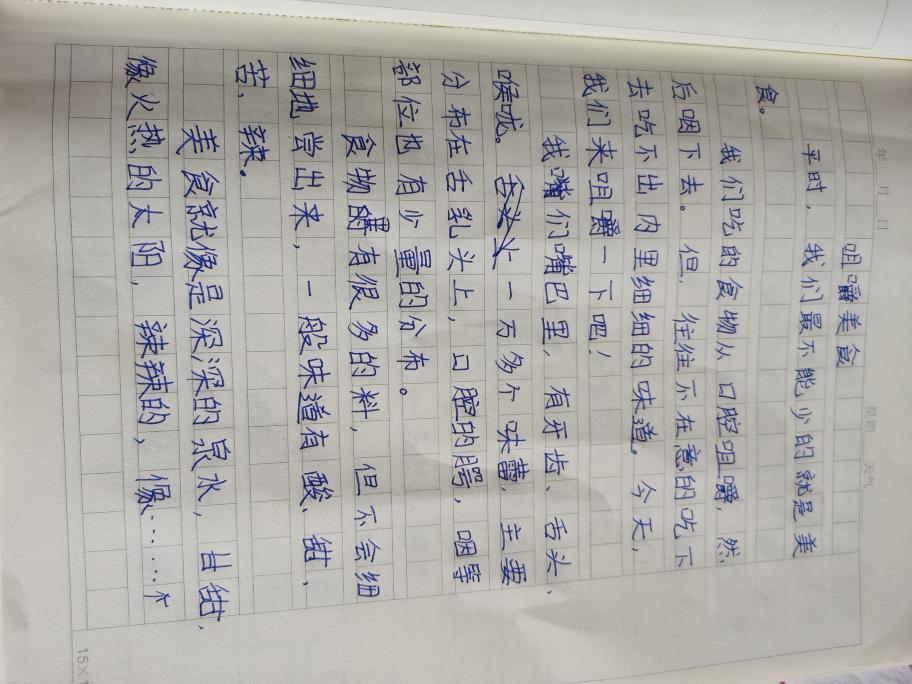 年 月 日 星期 天气
咀嚼美食
平时，我们最不能少的就是美
食。
我们吃的食物从口腔咀嚼，然
后咽下去。但，往往不在意的吃下
去吃不出内里细细的味道。今天，
我们来咀嚼一下吧！
我们嘴巴里，有牙齿、舌头、
喉咙。一万多个味蕾，主要
分布在舌乳头上，口腔的腭，咽等
部位也有少量的分布。
食物有很多的料，但不会细
细地尝出来，一般味道有酸、甜、
苦、辣。
美食就像是深深的泉水，甘甜，
像火热的太阳，辣辣的，像……个